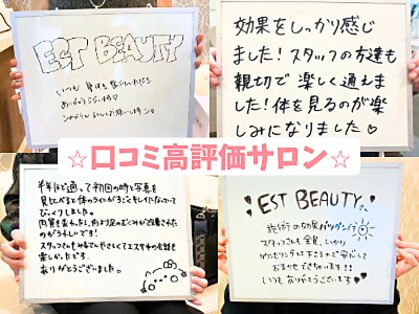 EST BEAUTY
いつも 身体を整えていただき
ありがとうございます♡
これからもよろしくお願いします
効果をしっかり感じ
ました！スタッフの方達も
親切で楽しく通えま
した！体を見るのが楽
しみになりました♡
☆口コミ高評価サロン☆
半年ほど通って初回の時と写真を
見比べると体のラインがすごくキレイになっていて
びっくりしました。
内質も変わったし、何より足のむくみが改善されたの
がうれしいです！
スタッフさんもみなさんやさしくてエステ中の会話も
楽しかったです。
ありがとうございました。
EST BEAUTY
施術の効果バツグン！
スタッフさんも全員、しっかり
カウンセリングして下さるので安心して
おまかせできています!!
いつもありがとうございます♥